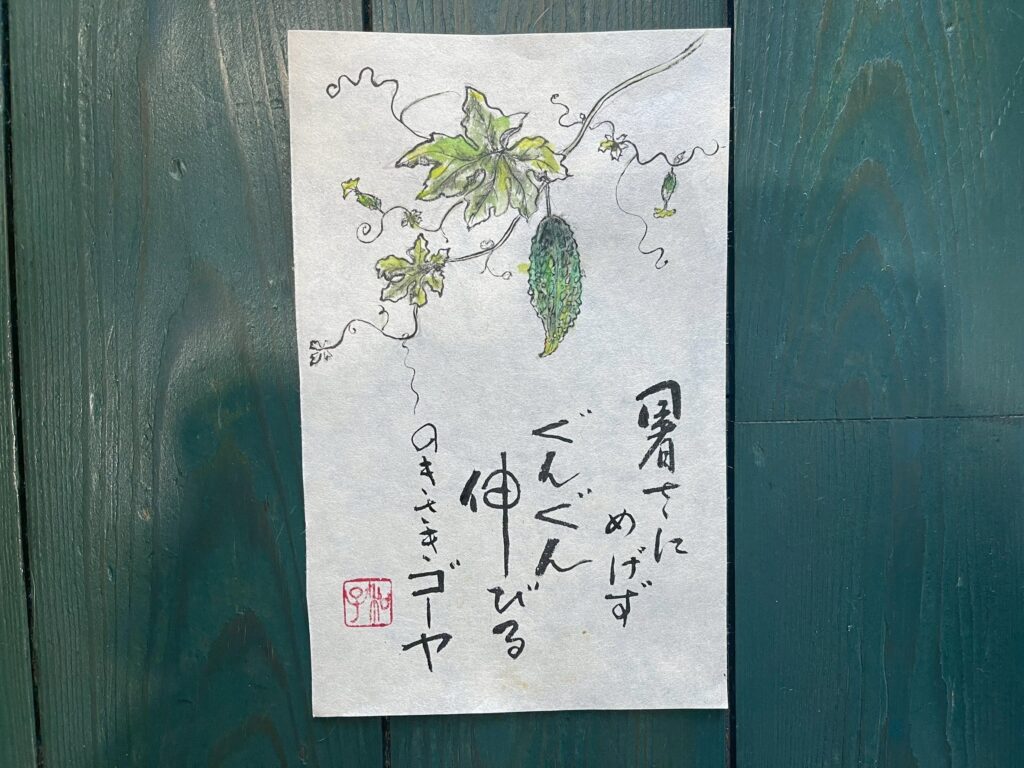 暑さに
めげず
ぐんぐん
伸びる
のきさきゴーヤ